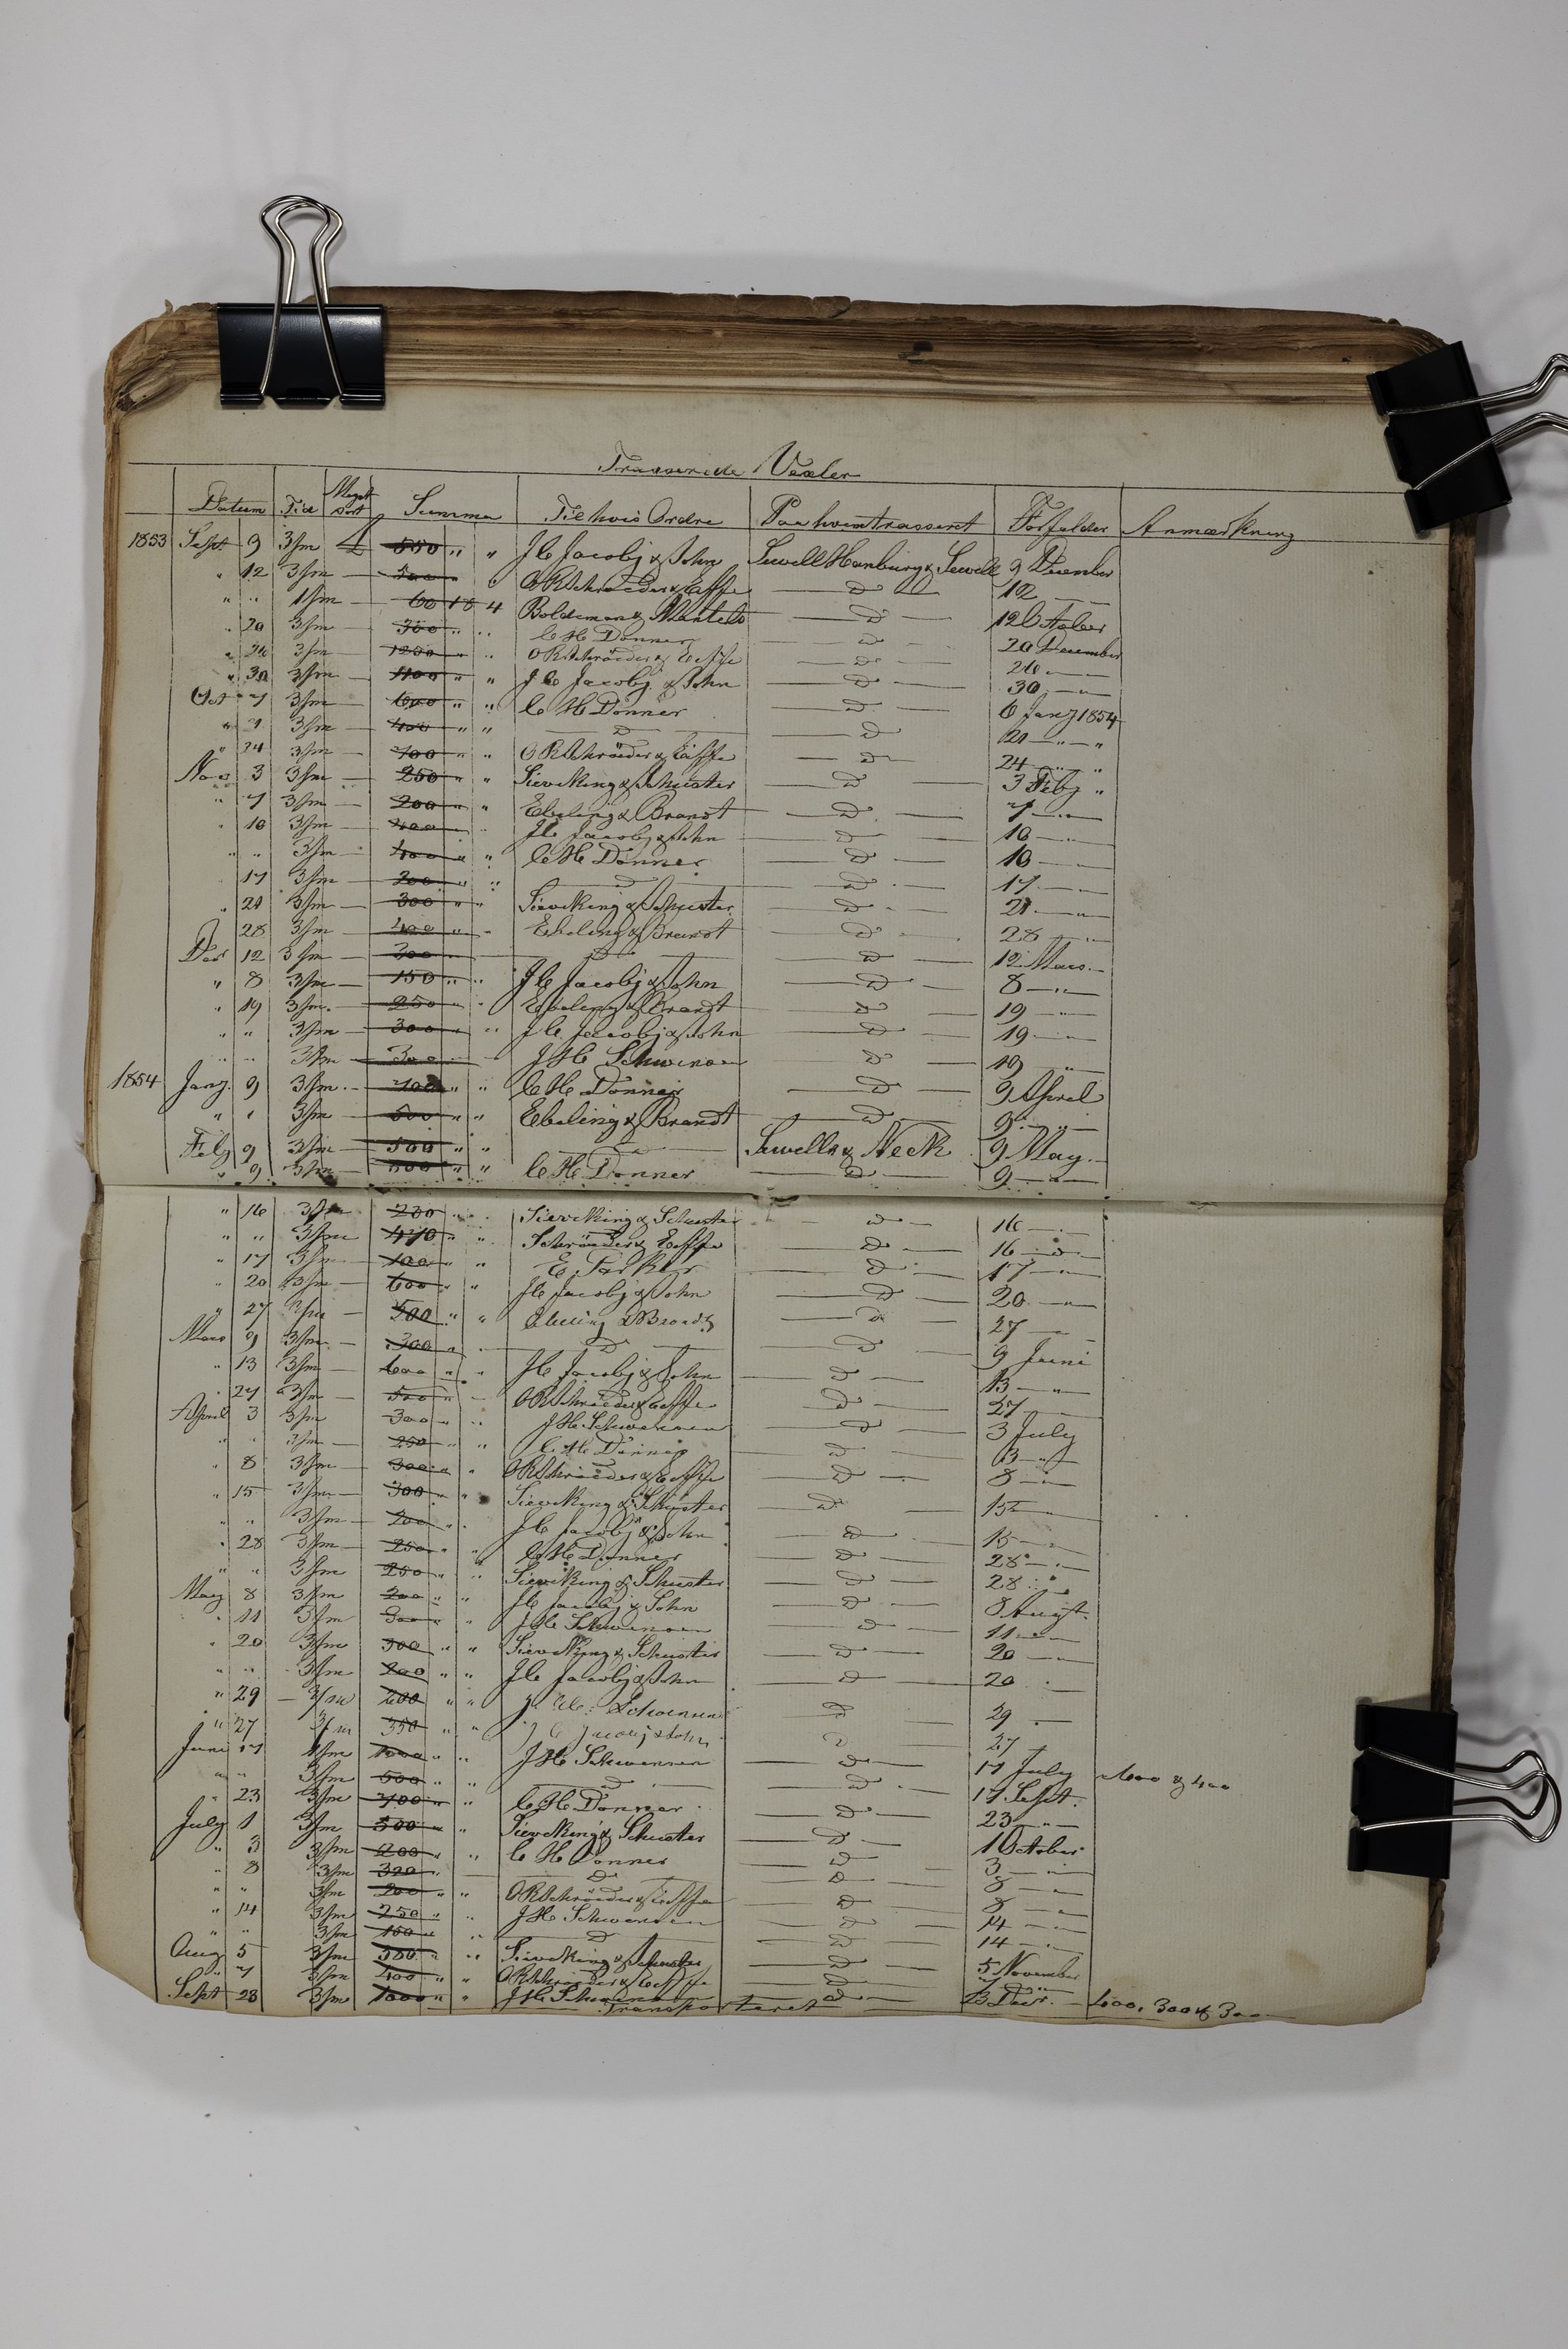 Trasserede Vexler
Datum Tid Mynt sort Summa Til hvis Ordre Paa hvem trasseret Forfalder Anmærkning
1853 Sept 9 3/m £ 550 " " J C Jacobj & Sohn Sewell Hanbury & Sewell 9 December
" 12 3/m — 500 " " O R Schroeder & Eeffe — D — 12 —
" " 1/m — 60 18 4 Boldemann & Mantels — D — 12 October
" 20 3/m — 300 " " C H Donner — D — 20 December
" 26 3/m — 1200 " " O R Schröeder & Eeffe — D — 26 —
" 30 3/m — 1100 " " J C Jacobj & Sohn — D — 30 —
Oct 7 3/m — 600 " " C H Donner — D — 6 Jany 1854
" 3/m — 400 " " — D — — D — 21 — "
" 24 3/m — 700 " " O R Schröeder & Eeffe — D — 24 — "
Nov 3 3/m — 250 " " Sieveking & Schuster — D — 3 Feby "
" 7 3/m — 200 " " Ebeling & Brandt — D — 7 — "
" 10 3/m — 400 " " J C Jacobj & Sohn — D — 10 — "
" " 3/m — 400 " " C H Donner — D — 10 — "
17 3/m — 200 " " — D — — D — 17 — "
" 21 3/m — 300 " " Sieveking & Schuster — D — 21 — "
28 3/m — 400 " " Ebeling & Brandt — D — 28 — "
Dec 12 3/m — 300 " — D — — D — 12 Mars
" 8 3/m — 150 " " J C Jacobj & Sohn — D — 8 — "
" 19 3/m — 250 " " Ebeling & Brandt — D — 19 — "
" " 3/m — 300 " " J C Jacobj & Sohn — D — 19 — "
" " 3/m — 300 — J H Schwensen — D — 19 "
1854 Jany 9 3/m — 400 " " C H Donner — D — 9 April
" " 3/m — 500 " " Ebeling & Brandt — D — 9 — "
Feby 9 3/m — 500 " " — D — Sewells & Neck 9 May
" 9 3/m — 300 " " C H Donner — D — 9 — "
" 16 3/m — 200 " " Sieveking & Schuster — D — 16 —
" " 3/m — 470 " " Schröeder & Eeffe — D — 16 —
" 17 3/m — 100 " " — D — 17 — "
" 20 3/m — 600 " " J C Jacobj & Sohn — D — 20 — "
" 27 3/m — 500 " " Ebeling & Brandt — D — 27 —
Mars 9 3/m — 300 " — D — — D — 9 Juni
" 13 3/m — 600 " " J C Jacobj & Sohn — D — 13 — "
27 3/m — 500 " — O R Schröeder & Eeffe — D — 27 —
April 3 3/m — 300 " " J H Schwensen — D — 3 July
" " 3/m — 250 " " C H Donner — D — 3 — "
" 8 3/m — 300 " " O R Schröeder & Eeffe — D — 8 — "
" 15 3/m — 300 " " Sieveking & Schuster — D — 15 —
" " 3/m — 200 " " J C Jacobj & Sohn — D — 15 —
" 28 3/m — 250 " " C H Donner — D — 28 —
" " 3/m 250 " " Sieveking & Schuster — D — 28
May 8 3/m — 200 " " J C Jacobj & Sohn — D — 8 August
" 11 3/m — 300 " " J H Schwensen — D — 11 —
" 20 3/m 300 " " Sieveking & Schuster — D — 20 —
" " 3/m 200 " " J C Jacobj & Sohn — D — 20
" 29 — 3/m 200 " " J. H. Schwensen D — 29 —
" 27 3/m 350 " " J C Jacobj & Sohn D 27
Juni 17 1/m 1000 " " J H Schwensen — D — 17 July — 600 & 400
" " 3/m 500 " " — D — — D — 17 Sept.
" 23 3/m 700 " " C H Donner — D — 23 — "
July 1 3/m 500 " " Sieveking & Schuster — D — 1 October
" 3 3/m 200 " " C H Donner — D — 3 — "
" 8 3/m 300 " — D — — D — 8 — "
" " 3/m 200 " " O R Schröeder & Eeffe — D — 8 — "
" 14 3/m 250 " " J H Schwensen — D — 14 — "
" " 3/m 100 " " — D — — D — 14 —
Aug 5 3/m 300 " " Sieveking & Schuster — D — 5 November
" 7 3/m 400 " " O R Schröeder & Eeffe — D —
Sept 23 3/m 1000 " " J H Schwensen — D — 23 Decr. — 400, 300 & 300
Transporteret